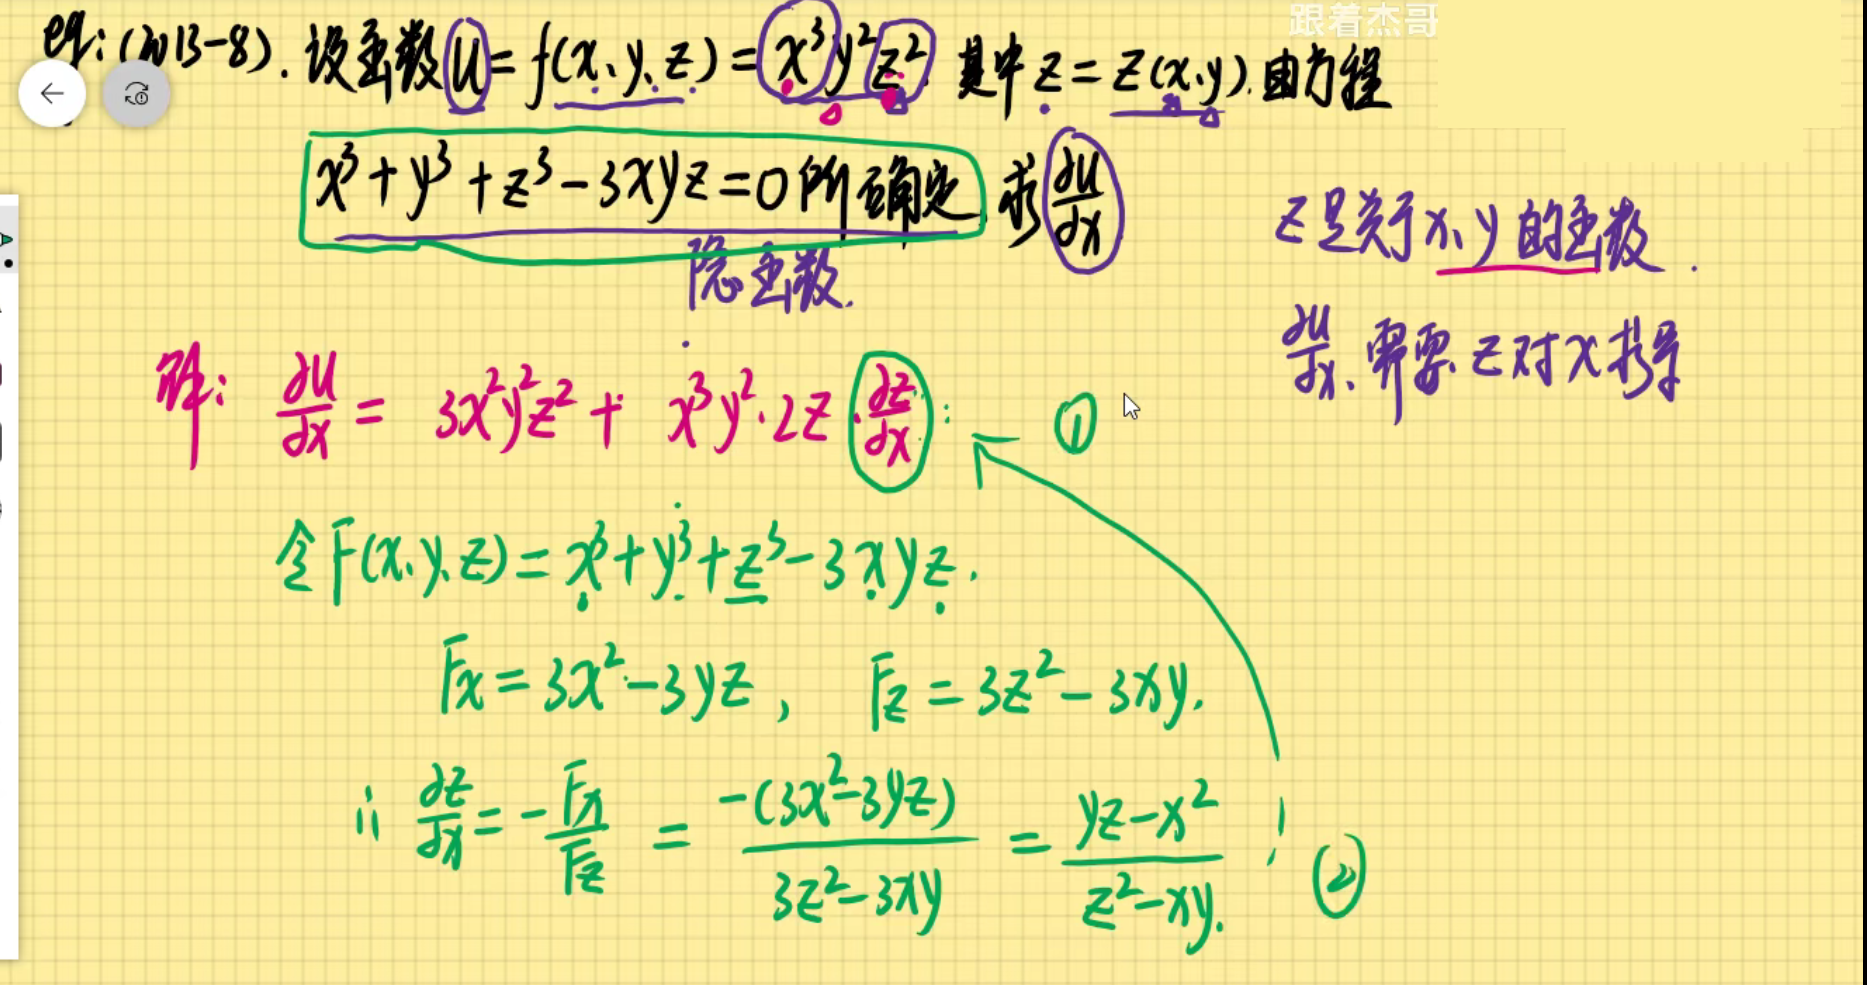 跟着杰哥
eg:(2013-8).设函数U=f(x、y、z)=x³y²z² 其中z=z(x、y).由方程
x³+y³+z³-3xyz=0所确定,求∂U/∂x
隐函数.
z是关于x、y的函数.
∂U/∂x、需要z对x求导
解: ∂U/∂x = 3x²y²z² + x³y²·2z·∂z/∂x: ①
令F(x、y、z)=x³+y³+z³-3xyz.
Fx=3x²-3yz, Fz=3z²-3xy.
∴ ∂z/∂x=-Fx/Fz = -(3x²-3yz)/3z²-3xy = yz-x²/z²-xy. ②